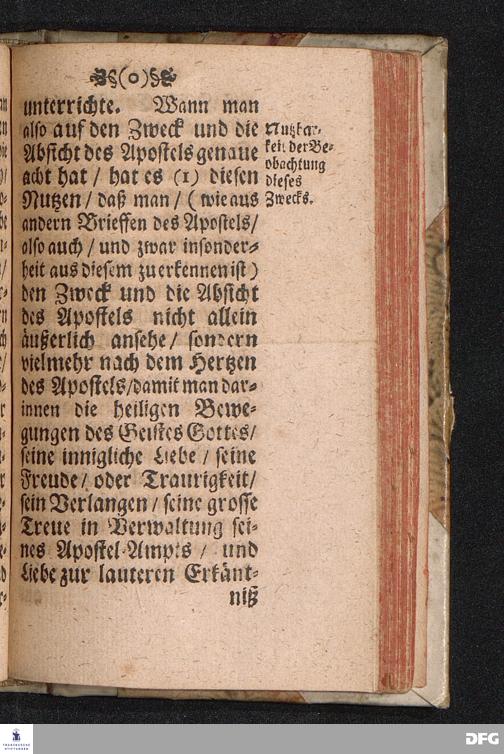 (o)
unterrichte. Wann man
also auf den Zweck und die
Absicht des Apostels genaue
acht hat / hat es (1) diesen
Nutzen / daß man / ( wie aus
andern Brieffen des Apostels /
also auch / und zwar insonder-
heit aus diesem zu erkennen ist )
den Zweck und die Absicht
des Apostels nicht allein
äußerlich ansehe / sondern
vielmehr nach dem Hertzen
des Apostels / damit man dar-
innen die heiligen Bewe-
gungen des Geistes Gottes /
seine innigliche Liebe / seine
Freude / oder Traurigkeit /
sein Verlangen / seine grosse
Treue in Verwaltung sei-
nes Apostel-Ampts / und
Liebe zur lauteren Erkänt-
niß
Nutzbar-
keit der Be-
obachtung
dieses
Zwecks.
FRANCKESCHE
STIFTUNGEN
DFG